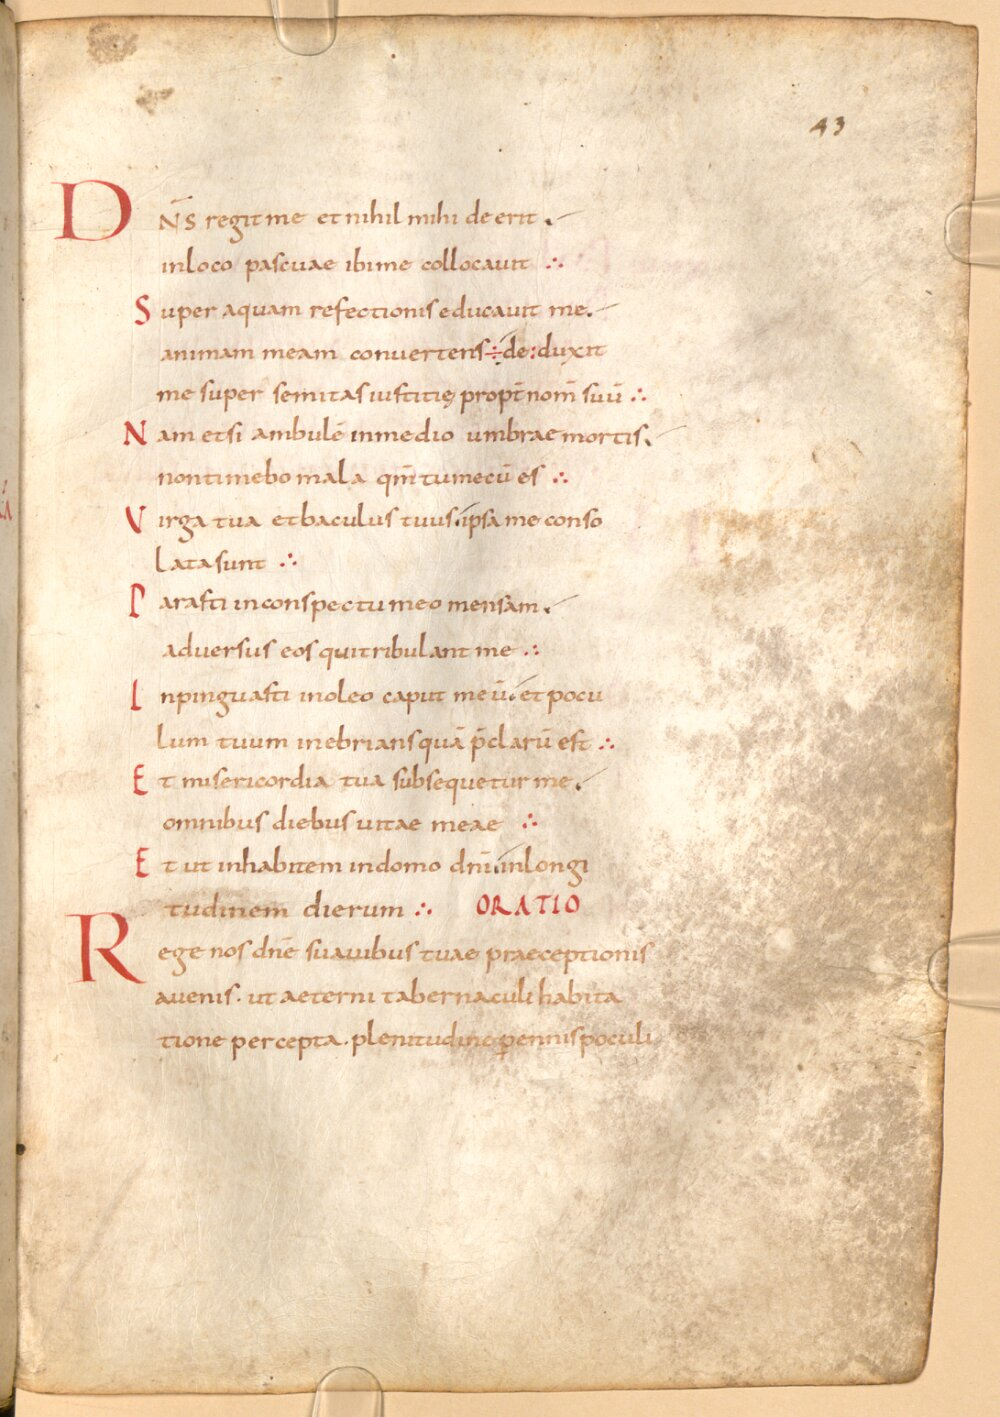 43
DN̄S regit me et nihil mihi deerit.
in loco pascuae ibi me collocavit ∴
Super aquam refectionis educavit me.
animam meam convertens ÷ de:duxit
me super semitas iustitię propt̄ nom̄ suū ∴
Nam etsi ambulē in medio umbrae mortis.
non timebo mala qm̄ tu mecū es ∴
Virga tua et baculus tuus. ipsa me conso
lata sunt ∴
Parasti in conspectu meo mensam.
adversus eos qui tribulant me ∴
Inpinguasti in oleo caput meū. et pocu
lum tuum inebrians quā p̄clarū est ∴
Et misericordia tua subsequetur me.
omnibus diebus vitae meae ∴
Et ut inhabitem in domo dn̄i. in longi
tudinem dierum ∴ ORATIO
Rege nos dn̄e suavibus tuae praeceptionis
avenis. ut aeterni tabernaculi habita
tione percepta. plenitudine ꝑennis poculi